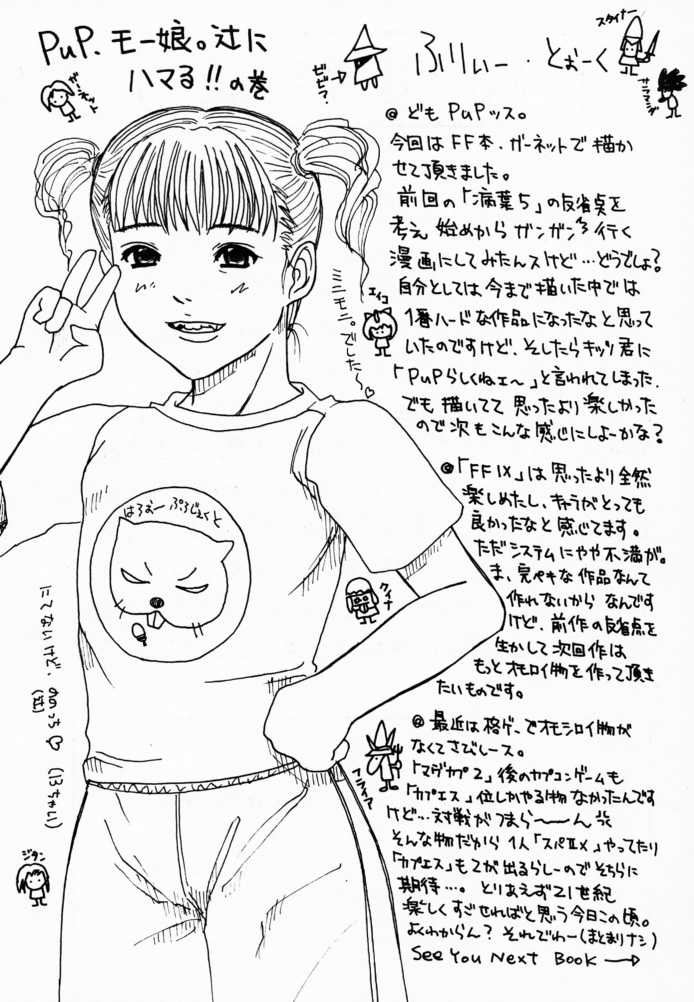 PuP. モー娘。辻に
ハマる!!の巻
ふりぃー・とぉーく
スタイナー
サラマンダ
ビビ?→
ガーネット
@ どもPuPッス。
今回はFF本、ガーネットで描か
せて頂きました。
前回の「病葉5」の反省点を
考え始めからガンガン行く
漫画にしてみたんスけど…どうでしょ?
自分としては今まで描いた中では
1番ハードな作品になったなと思って
いたのですけど、そしたらキッソ君に
「PuPらしくねェ〜」と言われてしまった。
でも描いてて思ったより楽しかった
ので次もこんな感じにしよーかな?
エイコ
ミニモニ。でした〜♡
@「FFⅨ」は思ったより全然
楽しめたし、キャラがとっても
良かったなと感じてます。
ただシステムにやや不満が。
ま、完ペキな作品なんて
作れないからなんです
けど、前作の反省点を
生かして次回作は
もっとオモロイ物を作って頂き
たいものです。
クイナ
はろおーぷろじぇくと
にてないけど、ののっち♡(13ちゃい)
(辻)
@ 最近は格ゲーでオモシロイ物が
なくてさびしース。
「マヴカプ2」後のカプコンゲームも
「カプエス」位しかやる物なかったんです
けど…対戦がつまら〜〜ん
そんな物だから1人「スパⅡX」やってたり
「カプエス」も2が出るらしーのでそちらに
期待…。とりあえず21世紀
楽しくすごせればと思う今日この頃。
よくわからん?それでわー(まとまりナシ)
See You Next Book →
フライア
ジタン